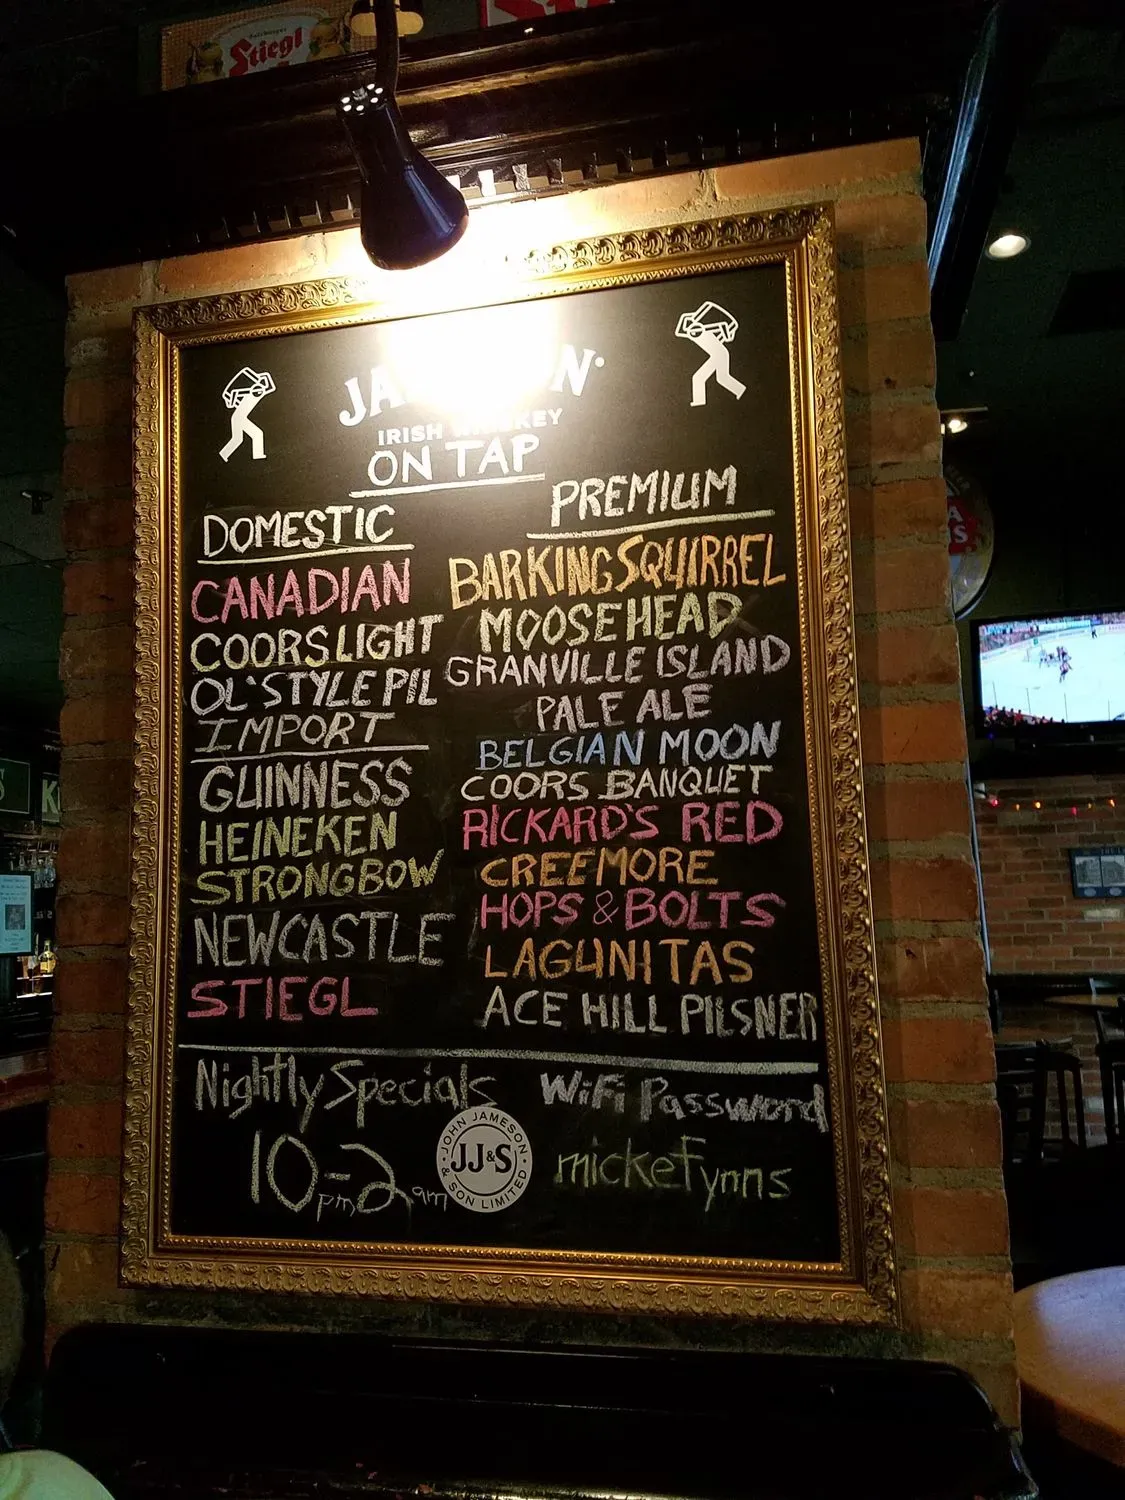 Stiegl
JAMESON
IRISH WHISKEY
ON TAP
DOMESTIC
CANADIAN
COORS LIGHT
OL' STYLE PIL
IMPORT
GUINNESS
HEINEKEN
STRONGBOW
NEWCASTLE
STIEGL
PREMIUM
BARKING SQUIRREL
MOOSEHEAD
GRANVILLE ISLAND
PALE ALE
BELGIAN MOON
COORS BANQUET
RICKARD'S RED
CREEMORE
HOPS & BOLTS
LAGUNITAS
ACE HILL PILSNER
Nightly Specials
10pm-2am
JOHN JAMESON
JJ&S
& SON LIMITED
WiFi Password
mickefynns